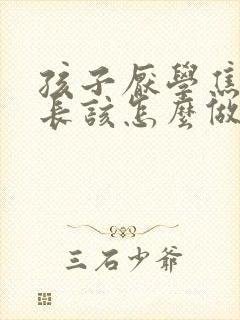 孩子厭學焦
長該怎麼做
三石少爺